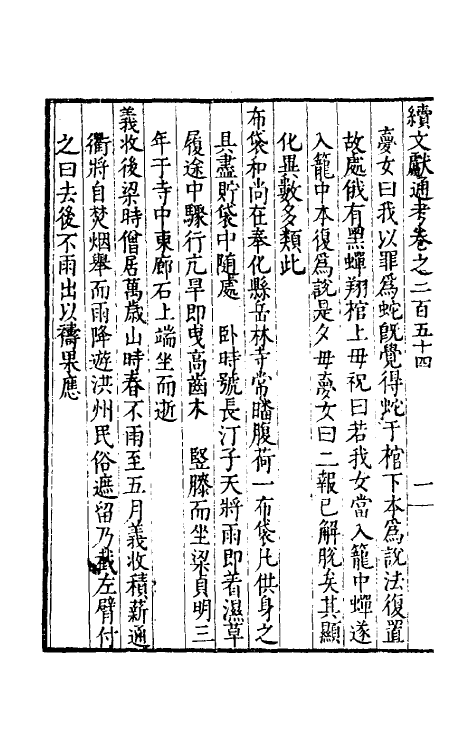 續文獻通考卷之二百五十四 二
夢女曰我以罪爲蛇旣覺得蛇于棺下本爲說法復置
故處俄有黑蟬翔棺上毋祝曰若我女當入籠中蟬遂
入籠中本復爲說是夕毋夢女曰二報已解脫矣其顯
化異數多類此
布袋和尚在奉化縣岳林寺常皤腹荷一布袋凡供身之
具盡貯袋中随處 卧時號長汀子天將雨即着濕草
履途中驟行亢旱即曳高齒木 竪膝而坐梁貞明三
年于寺中東廊石上端坐而逝
義收後梁時僧居萬歲山時春不雨至五月義收積薪通
衢將自焚烟舉而雨降遊洪州民俗遮留乃截左臂付
之曰去後不雨出以禱果應